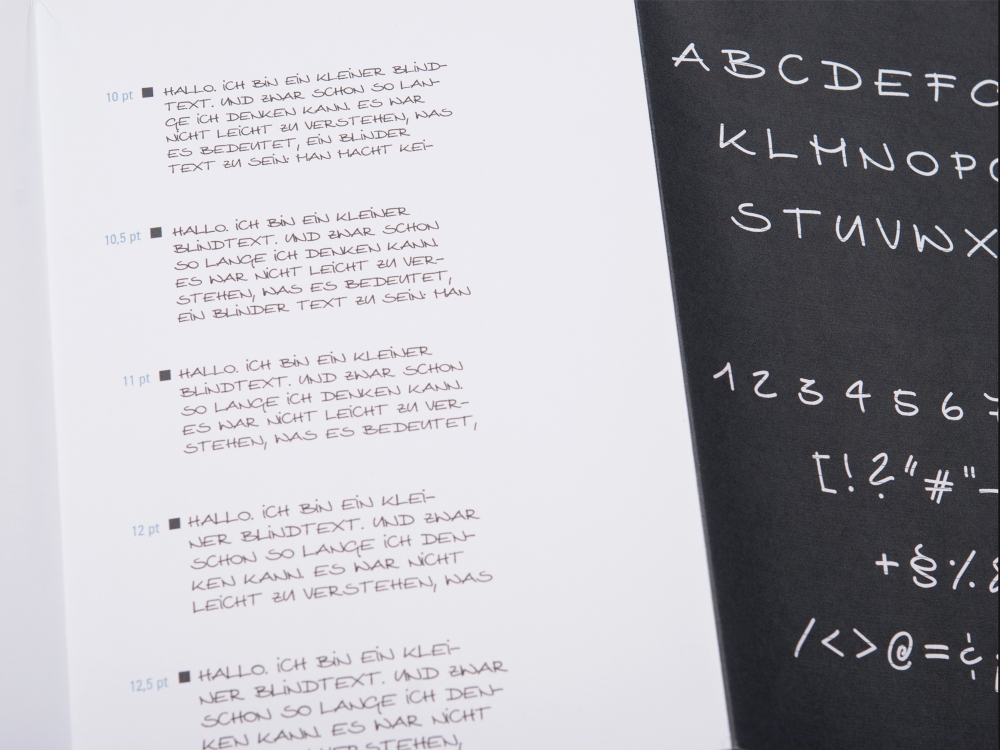 10 pt ■ HALLO. iCH BiN EiN KLEiNER BLiND-
TEXT. UND ZWAR SCHON SO LAN-
GE iCH DENKEN KANN. ES WAR
NiCHT LEiCHT ZU VERSTEHEN, WAS
ES BEDEUTET, EiN BLiNDER
TEXT ZU SEiN: MAN MACHT KEi-
10,5 pt ■ HALLO. iCH BiN EiN KLEiNER
BLiNDTEXT. UND ZWAR SCHON
SO LANGE iCH DENKEN KANN.
ES WAR NiCHT LEiCHT ZU VER-
STEHEN, WAS ES BEDEUTET,
EiN BLiNDER TEXT ZU SEiN: MAN
11 pt ■ HALLO. iCH BiN EiN KLEiNER
BLiNDTEXT. UND ZWAR SCHON
SO LANGE iCH DENKEN KANN.
ES WAR NiCHT LEiCHT ZU VER-
STEHEN, WAS ES BEDEUTET,
12 pt ■ HALLO. iCH BiN EiN KLEi-
NER BLiNDTEXT. UND ZWAR
SCHON SO LANGE iCH DEN-
KEN KANN. ES WAR NiCHT
LEiCHT ZU VERSTEHEN, WAS
12,5 pt ■ HALLO. iCH BiN EiN KLEi-
NER BLiNDTEXT. UND ZWAR
SCHON SO LANGE iCH DEN-
KEN KANN. ES WAR NiCHT
VERSTEHEN,
A B C D E F
K L M N O P
S T U V W X
1 2 3 4 5 6
[ ! ? " # " -
+ § %
/ < > @ = ¿ ¡